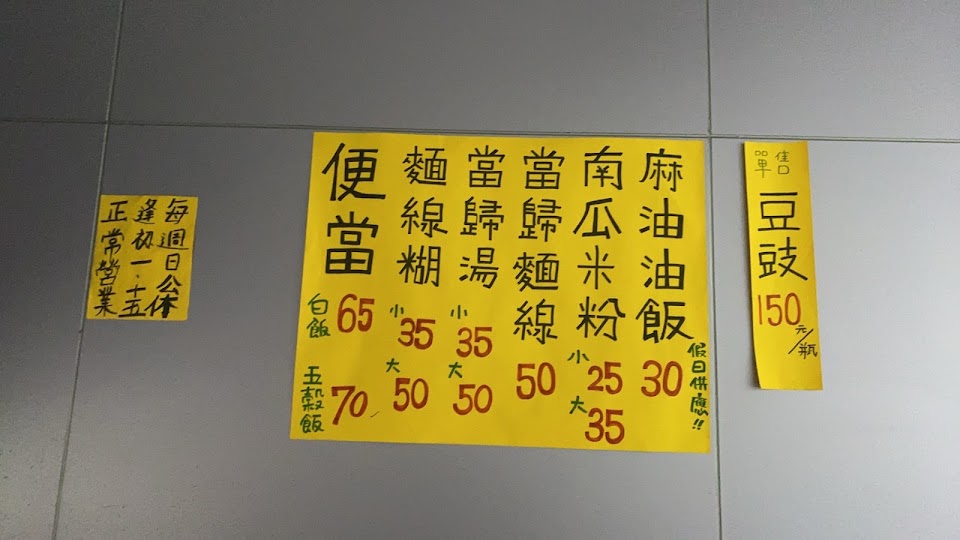 每週日公休
逢初一、十五
正常營業
麻油油飯 30
假日供應!!
南瓜米粉 小 25 大 35
當歸麵線 50
當歸湯 小 35 大 50
麵線糊 小 35 大 50
便當
白飯 65
五穀飯 70
單售
豆豉
150元/瓶